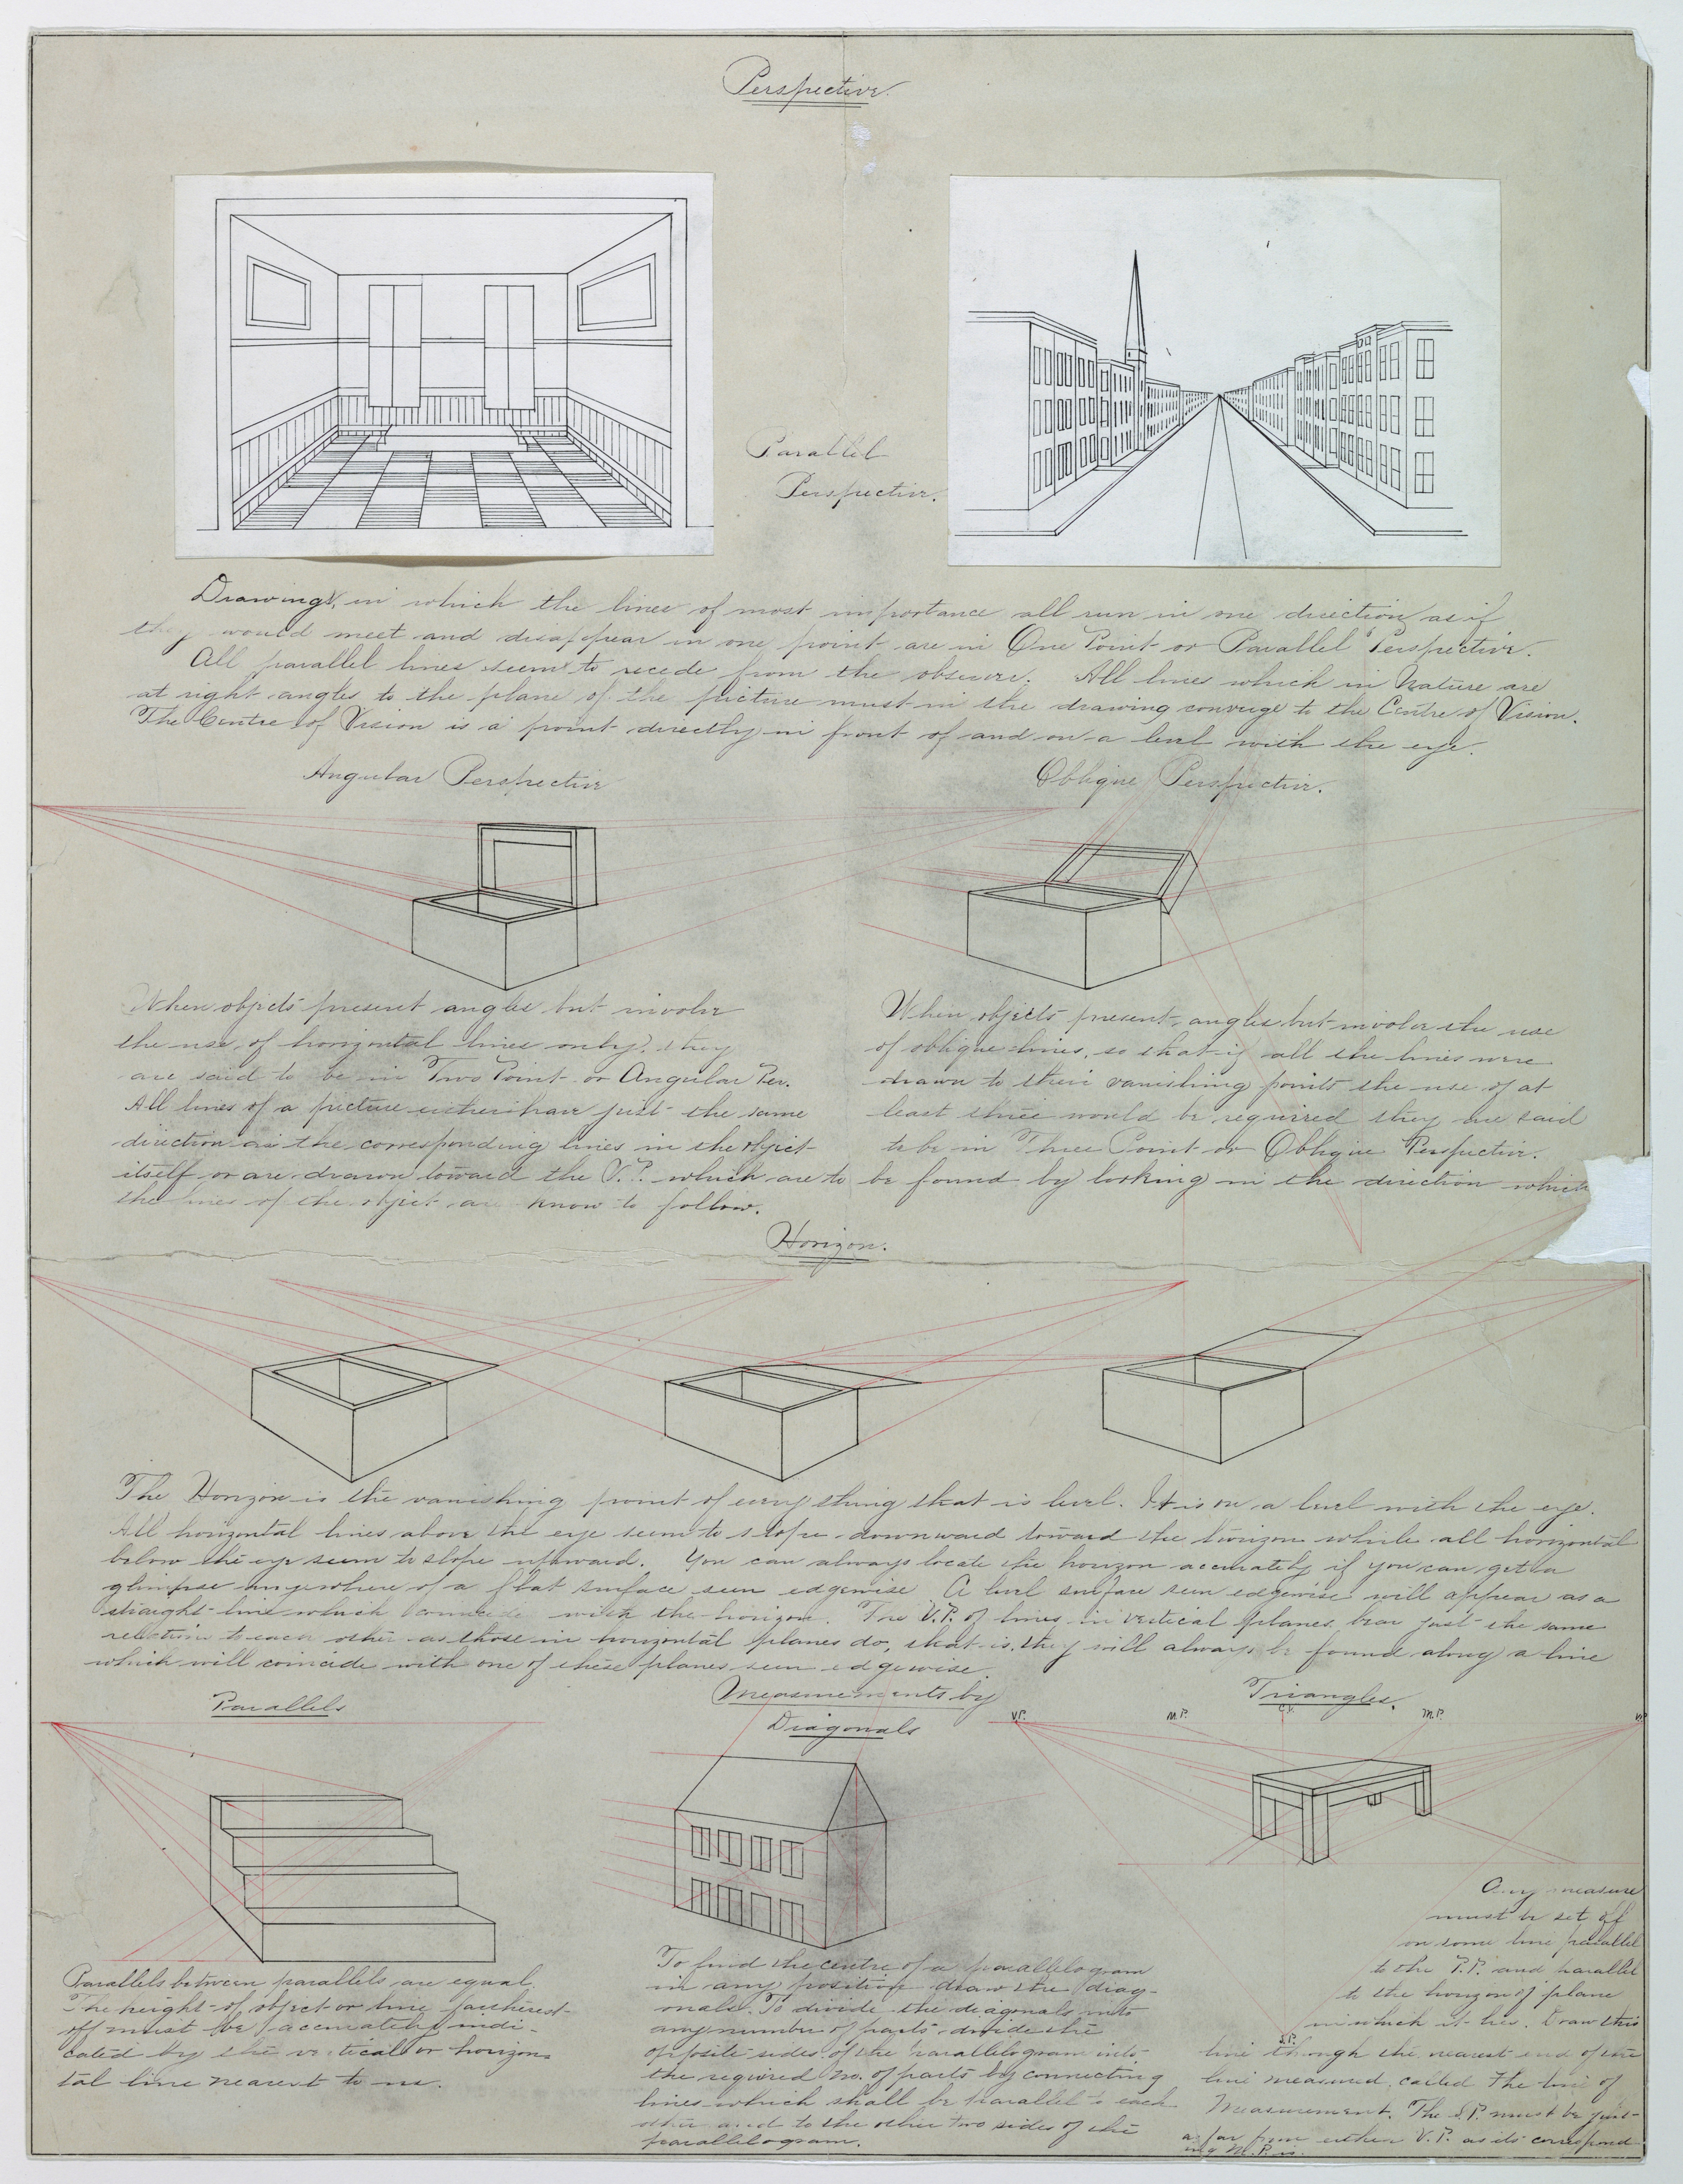 Perspective.
Parallel
Perspective.
Drawings, in which the lines of most importance all run in one direction as if
they would meet and disappear in one point are in One Point or Parallel Perspective.
All parallel lines seem to recede from the observer. All lines which in Nature are
at right angles to the plane of the picture must in the drawing converge to the Centre of Vision.
The Centre of Vision is a point directly in front of and on a level with the eye.
Angular Perspective
Oblique Perspective.
When objects present angles but involve
the use of horizontal lines only, they
are said to be in Two Point or Angular Per.
All lines of a picture either have just the same
direction as the corresponding lines in the object
itself or are drawn toward the V.P. which are to
When objects present angles but involve the use
of oblique lines, so that if all the lines were
drawn to their vanishing points the use of at
least three would be required they are said
to be in Three Point or Oblique Perspective.
be found by looking in the direction which
the lines of the object are know to follow.
Horizon.
The Horizon is the vanishing point of every thing that is level. It is on a level with the eye.
All horizontal lines above the eye seem to slope downward toward the horizon while all horizontal
below the eye seem to slope upward. You can always locate the horizon accurately if you can get a
glimpse anywhere of a flat surface seen edgewise A level surface seen edgewise will appear as a
straight line which coincide with the horizon. The V.P. of lines in vertical planes bear just the same
relation to each other as those in horizontal planes do, that is, they will always be found along a line
which will coincide with one of these planes seen edgewise.
Parallels
Measurements by
Diagonals
Triangles.
V.P.
M.P.
C.V.
M.P.
V.P.
Parallels between parallels are equal.
The height of object or line fartherest
off must be accurately indi-
cated by the vertical or horizon-
tal line nearest to me.
To find the centre of a parallelogram
in any position draw the diag-
onals. To divide the diagonals into
any number of parts divide the
opposite sides of the parallelogram into
the required no. of parts by connecting
lines which shall be parallel to each
other and to the other two sides of the
parallelogram.
Any measure
must be set off
on some line parallel
to the P.P. and parallel
to the horizon of plane
in which it lies. Draw this
S.P.
line through the nearest end of the
line measured, called The line of
Measurement. The S.P. must be just
as far from either V.P. as its correspond-
ing M.P. is.